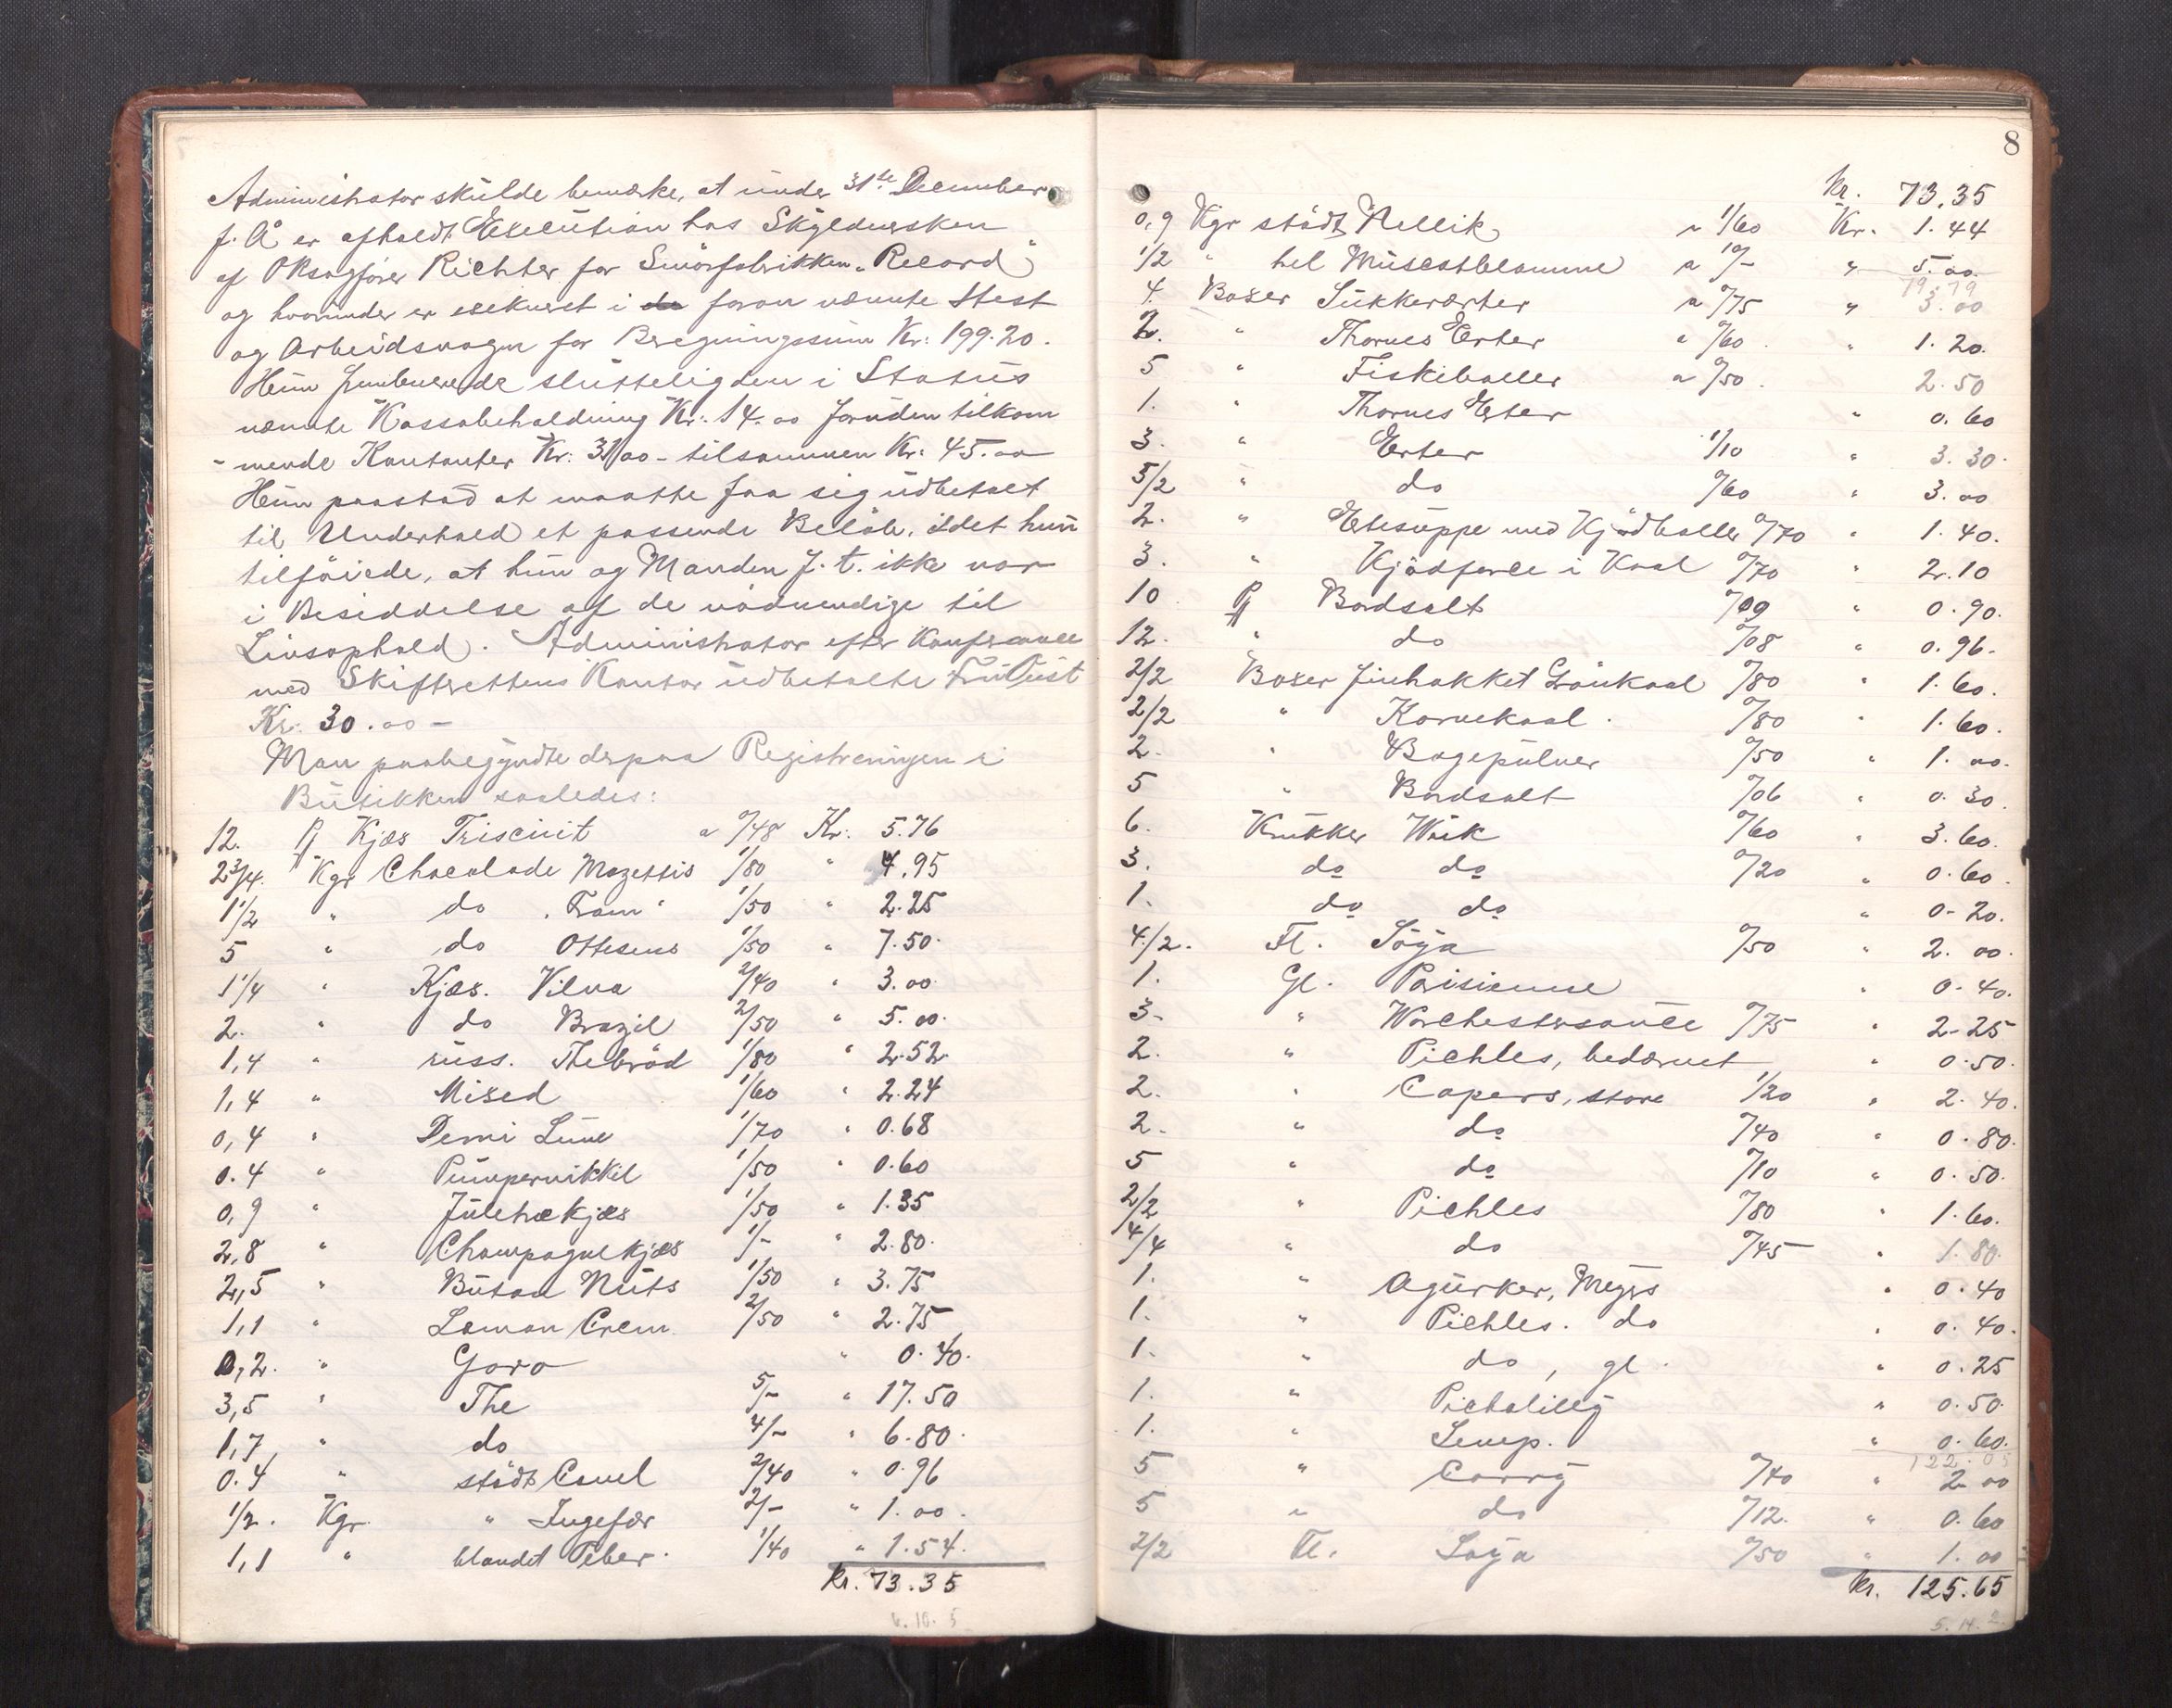 Administrator skulde bemærke, at under 31te December
f. Å er afholdt Execution hos Skyldnersken
af ORsagfører Richter for Smörfabrikken „Record"
og hvorunder er exekveret i de foran nævnte Hest
og Arbeidsvogn for Beregningssum Kr: 199.20.
Hun frembærede slutteligden i Status
nævnte Kassabeholdning Kr: 14.00 foruden tilkom
-mende Kontanter Kr: 31/00 - tilsammen Kr: 45.00
Hun paastod at maatte faa sig udbetalt
til Underhold et passende Belöb, idet hun
tilföiede, at hun og Manden f. t. ikke var
i Besiddelse af de nödvendige til
Livsophold. Administrator efter Konferance
med Skifterettens Kontor udbetalte Fru Qust
Kr. 30.00 -
Man paabegyndte derpaa Registreringen i
Butikken saaledes:
12. Pj Kjæs Triscuit a 0/48 Kr: 5.76
2 3/4. Kgr Chocolade Mozettis 1/80 " 4.95
1 1/2 " do „Fram" 1/50 " 2.25
5 " do Ottesens 1/50 " 7.50.
1 1/4 " Kjæs. Vilna 2/40 " 3.00
2. " do Brazil 2/50 " 5.00.
1,4 " russ. Thebröd 1/80 " 2.52
1,4 " Mixed 1/60 " 2.24
0,4 " Demi Lune 1/70 " 0.68
0.4 " Pumpernikkil 1/50 " 0.60
0,9 " Juletrækjæs 1/50 " 1.35
2,8 " Champagnekjæs 1/- " 2.80.
2,5 " Butan Nuts 1/50 " 3.75
1,1 " Lemon Crem 2/50 " 2.75
0,2. " Goro " 0.40.
3,5 " The 5/- " 17.50
1,7 " do 4/- " 6.80.
0.4 " stödt Canel 2/40 " 0.96
1/2. Kgr. " Ingefær 2/- " 1.00.
1,1 " blandet Peber. 1/40 " 1.54.
Kr. 73.35
6.10.5
8
Kr. 73,35
0,9 Kgr stödt Nellik a 1/60 Kr. 1.44
1/2 " hel Muscatblomme a 10/- " 5.00.
79.79
4. Boxer Sukkerærter a 0/75 " 3.00
2. " Thornes Erter a 0/60. " 1.20.
5 " Fiskeboller a 0/50. 2.50
1. " Thornes Erter " 0.60
3. " Erter 1/10 " 3.30.
5/2 " do 0/60 " 3.00
2. " Ertesuppe med Kjödboller 0/70 " 1.40.
3. " Kjödfarce i Kaal 0/70 " 2.10
10 Pj Bordsalt 0/09 " 0.90.
12. " do 0/08 " 0.96.
2/2 Boxer finhakket Grönkaal 0/80 " 1.60.
2/2 " Karvekaal. 0/80 " 1.60.
2. " Bagepulver 0/50 " 1.00.
5 " Bordsalt 0/06 " 0.30.
6. Krukker Wiik 0/60 " 3.60.
3. do do 0/20 " 0.60.
1. do do " 0-20.
4/2. Fl. Soya 0/50 " 2.00.
1. Gl. Parisienne " 0-40.
3- " Worchestersauce 0/75 " 2-25
2. " Pichles, bedærvet " 0.50.
2. " Capers, store 1/20 " 2.40.
2. " do 0/40 " 0.80.
5 " do 0/10 " 0.50.
2/2 " Pichles 0/80 " 1.60.
4/4 " do 0/45 " 1.80.
1. " Agurker, Meyers " 0.40
1. " Pichles. do " 0.40.
1. " do, gl. " 0.25
1. " Pichalilly " 0.50.
1. " Senep. " 0.60.
122.05
5 " Carry 0/40 " 2.00
5 " do 0/12. " 0.60
2/2 Fl. Soya 0/50 " 1.00
Kr. 125.65
5.14.2